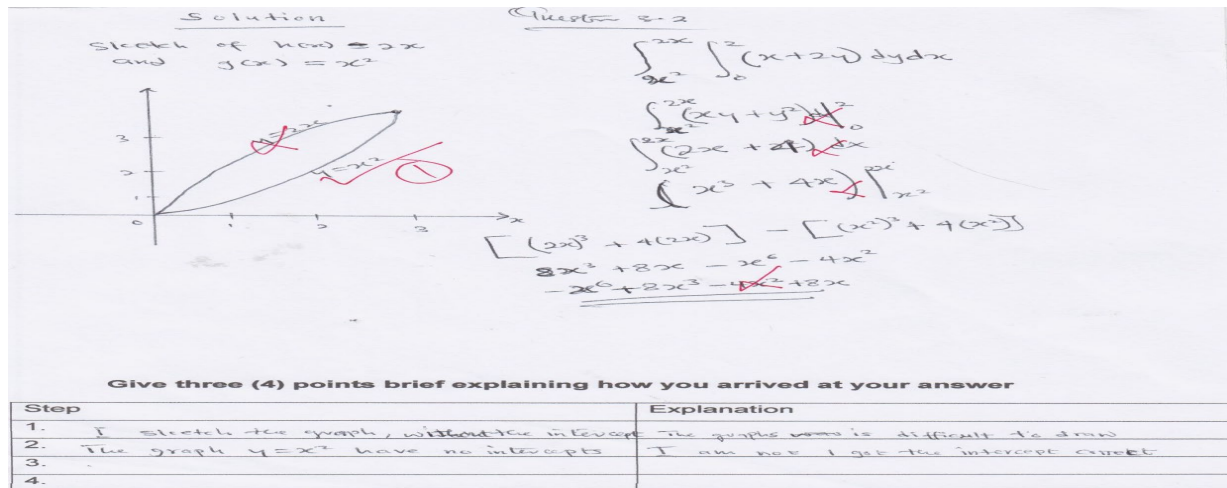 Solution
Question 3.2
Sketch of h(x) = 2x
and g(x) = x²
y = 2x
y = x²
①
3
2
1
0
1
2
3
x
∫_{x²}^{2x} ∫_0^2 (x+2y) dydx
∫_{x²}^{2x} (xy + y²) |_0^2
∫_{x²}^{2x} (2x + 4) dx
( x³ + 4x ) |_{x²}^{2x}
[(2x)³ + 4(2x)] - [(x²)³ + 4(x²)]
8x³ + 8x - x⁶ - 4x²
-x⁶ + 8x³ - 4x² + 8x
Give three (4) points brief explaining how you arrived at your answer
Step Explanation
1. I sketch the graph, without the intercept The graphs is difficult to draw
2. The graph y = x² have no intercepts I am not I got the intercept correct
3.
4.